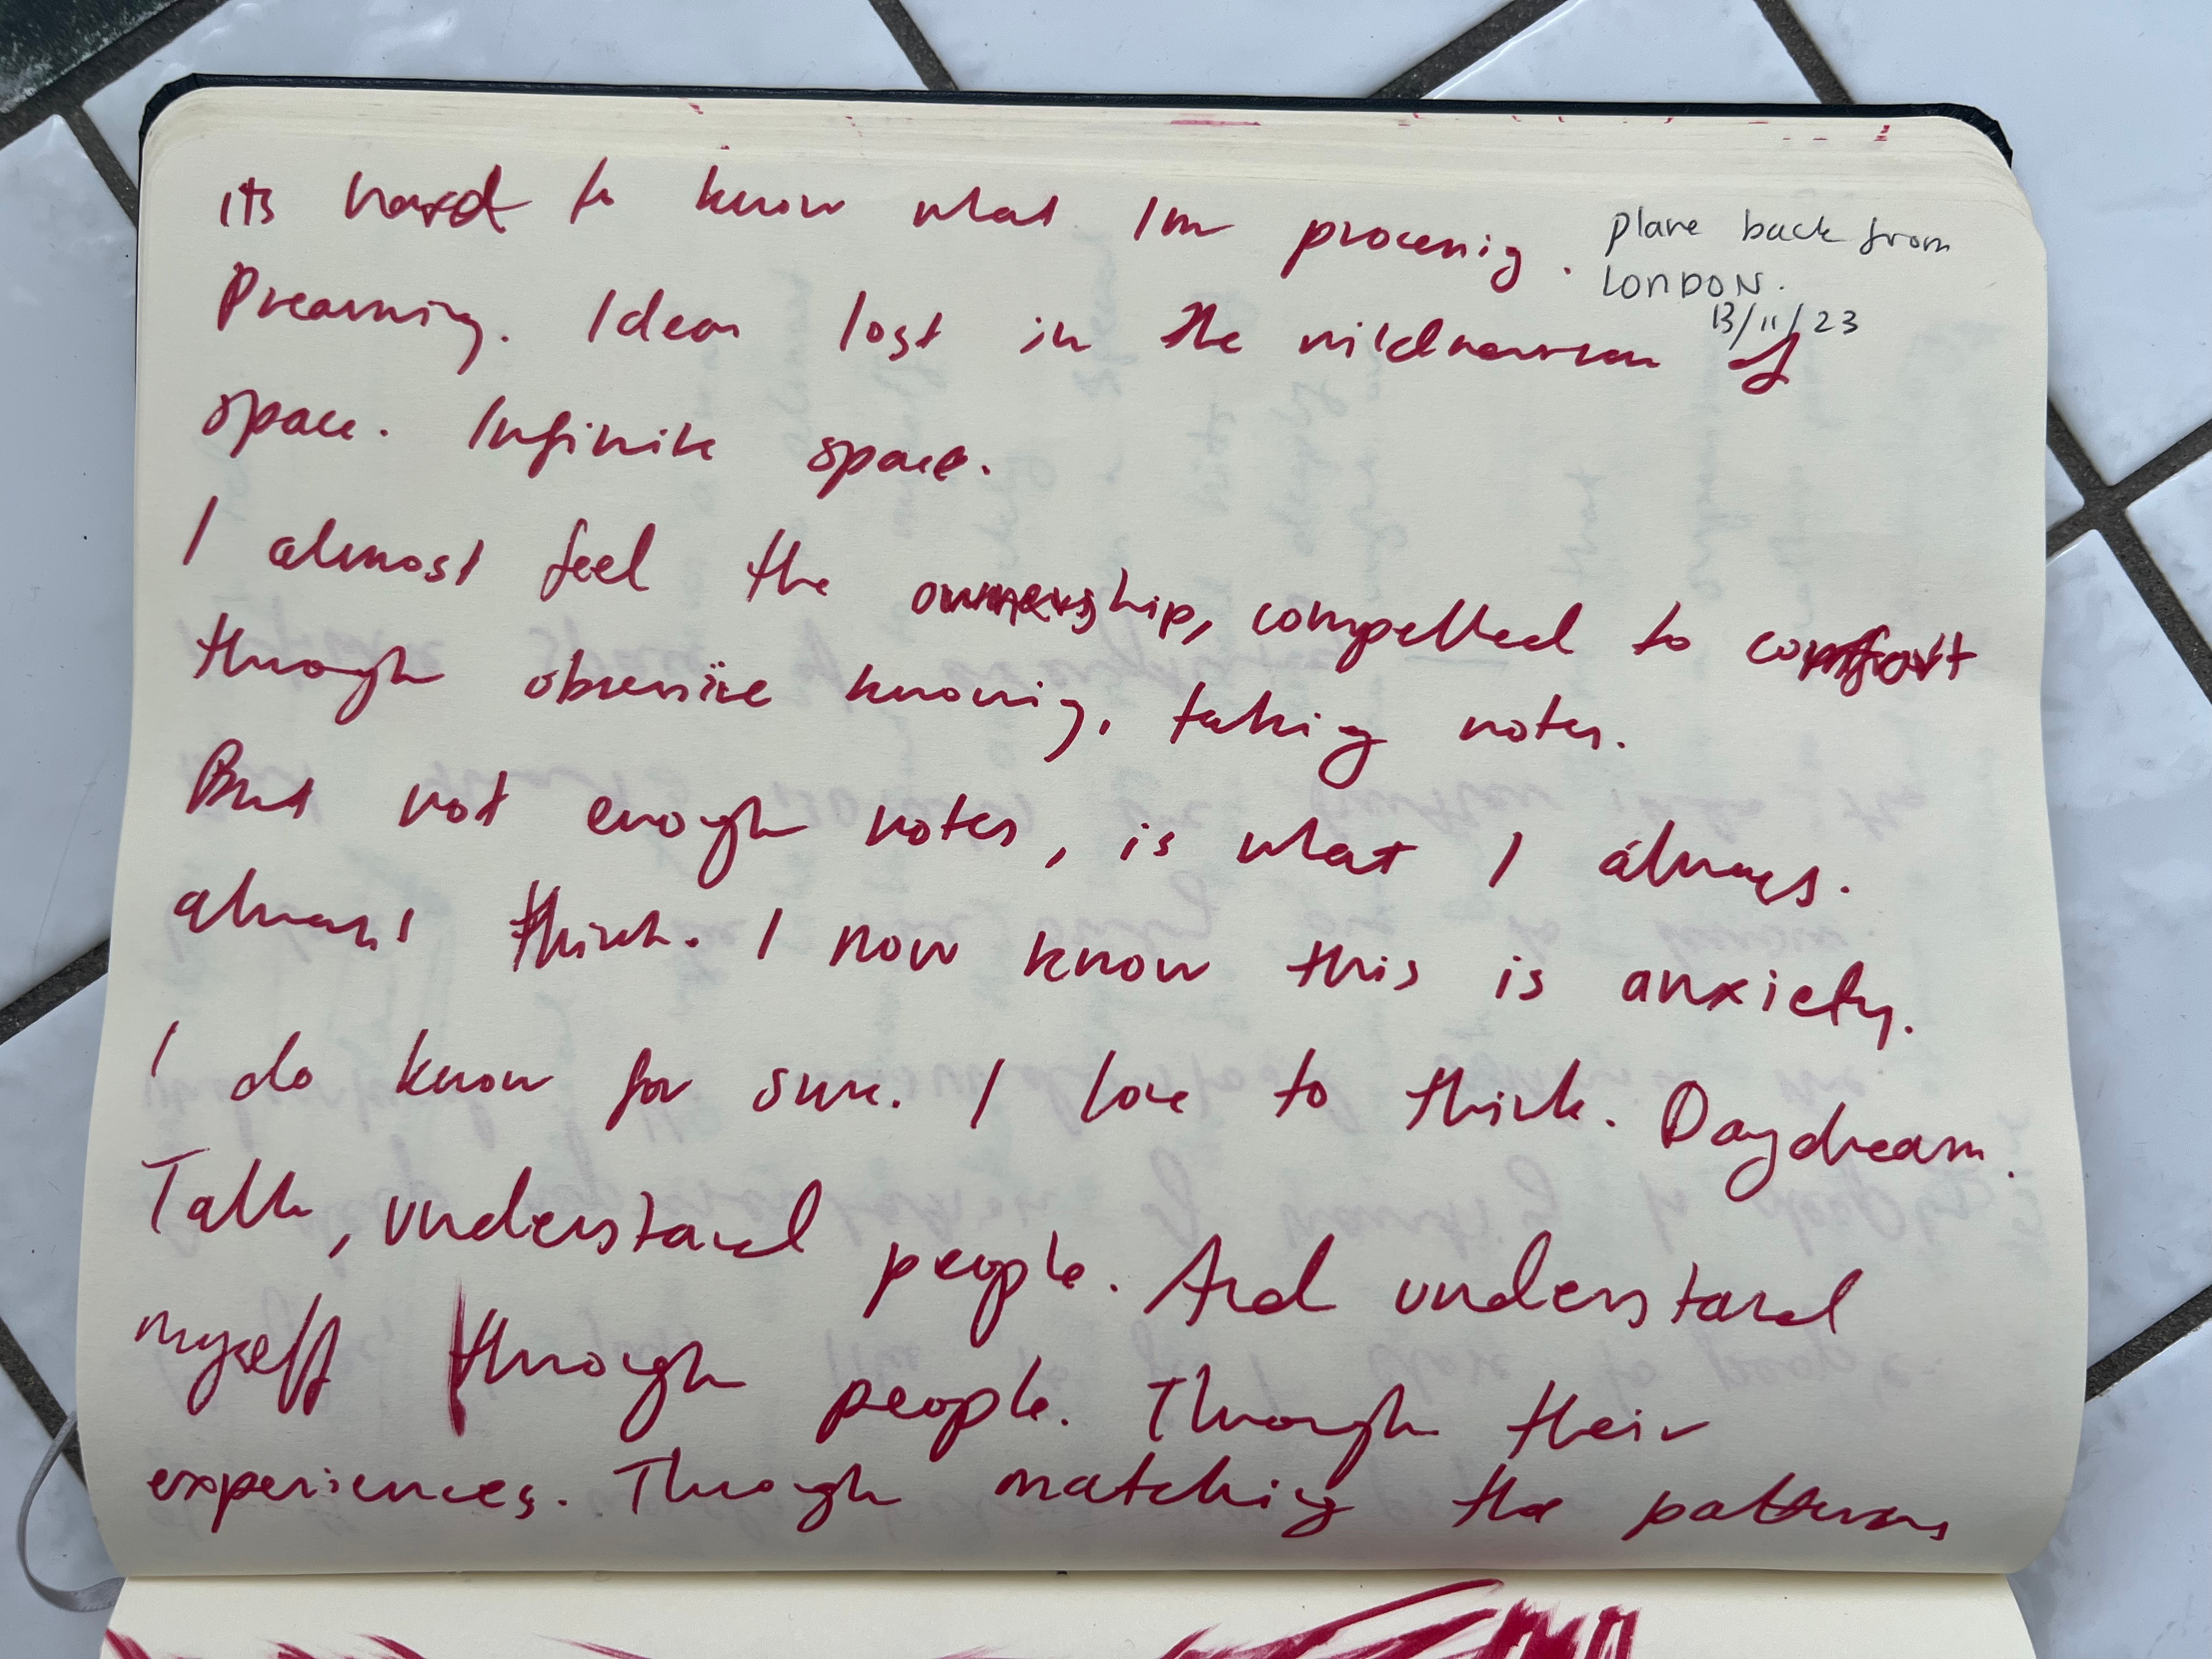 its hard to know what Im processing.
plane back from
LONDON.
13/11/23
Dreaming. Ideas lost in the of
space. Infinite space.
I almost feel the ownership, compelled to comfort
through obsessive knowing, taking notes.
But not enough notes, is what I always.
always think. I now know this is anxiety.
I do know for sure. I love to think. Daydream.
Talk, understand people. And understand
myself through people. Through their
experiences. Through matching the patterns